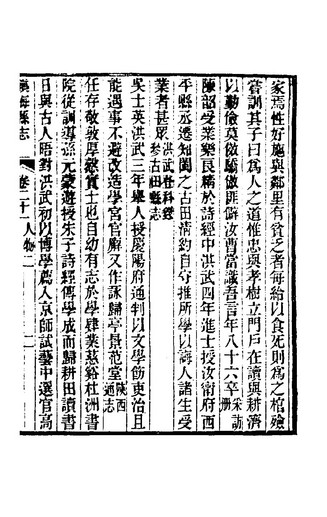 家焉性好施與鄰里有貧乏者每給以食死則為之棺殮
嘗訓其子曰為人之道惟忠與孝樹立門戶在讀與耕濟
以勤儉莫儌驕傲匪僻汝曹當識吾言年八十六卒采訪冊
陳韶受業樂良稱於詩經中洪武四年進士授汝甯府西
平縣丞遷知閩之古田清約自守推所學以誨人諸生受
業者甚眾洪武登科錄參古田縣志
吳士英洪武三年舉人授慶陽府通判以文學飭吏治且
能遇事不避改造學宮官廨又作詠歸亭景范堂陝西通志
任存敬敦厚慤實士也自幼有志於學肄業慈谿杜洲書
院從訓導孫元蒙遊授朱子詩經傳學成而歸耕田讀書
日與古人晤對洪武初以博學薦入京師試藝中選官高
鎮海縣志 卷二十二 人物二